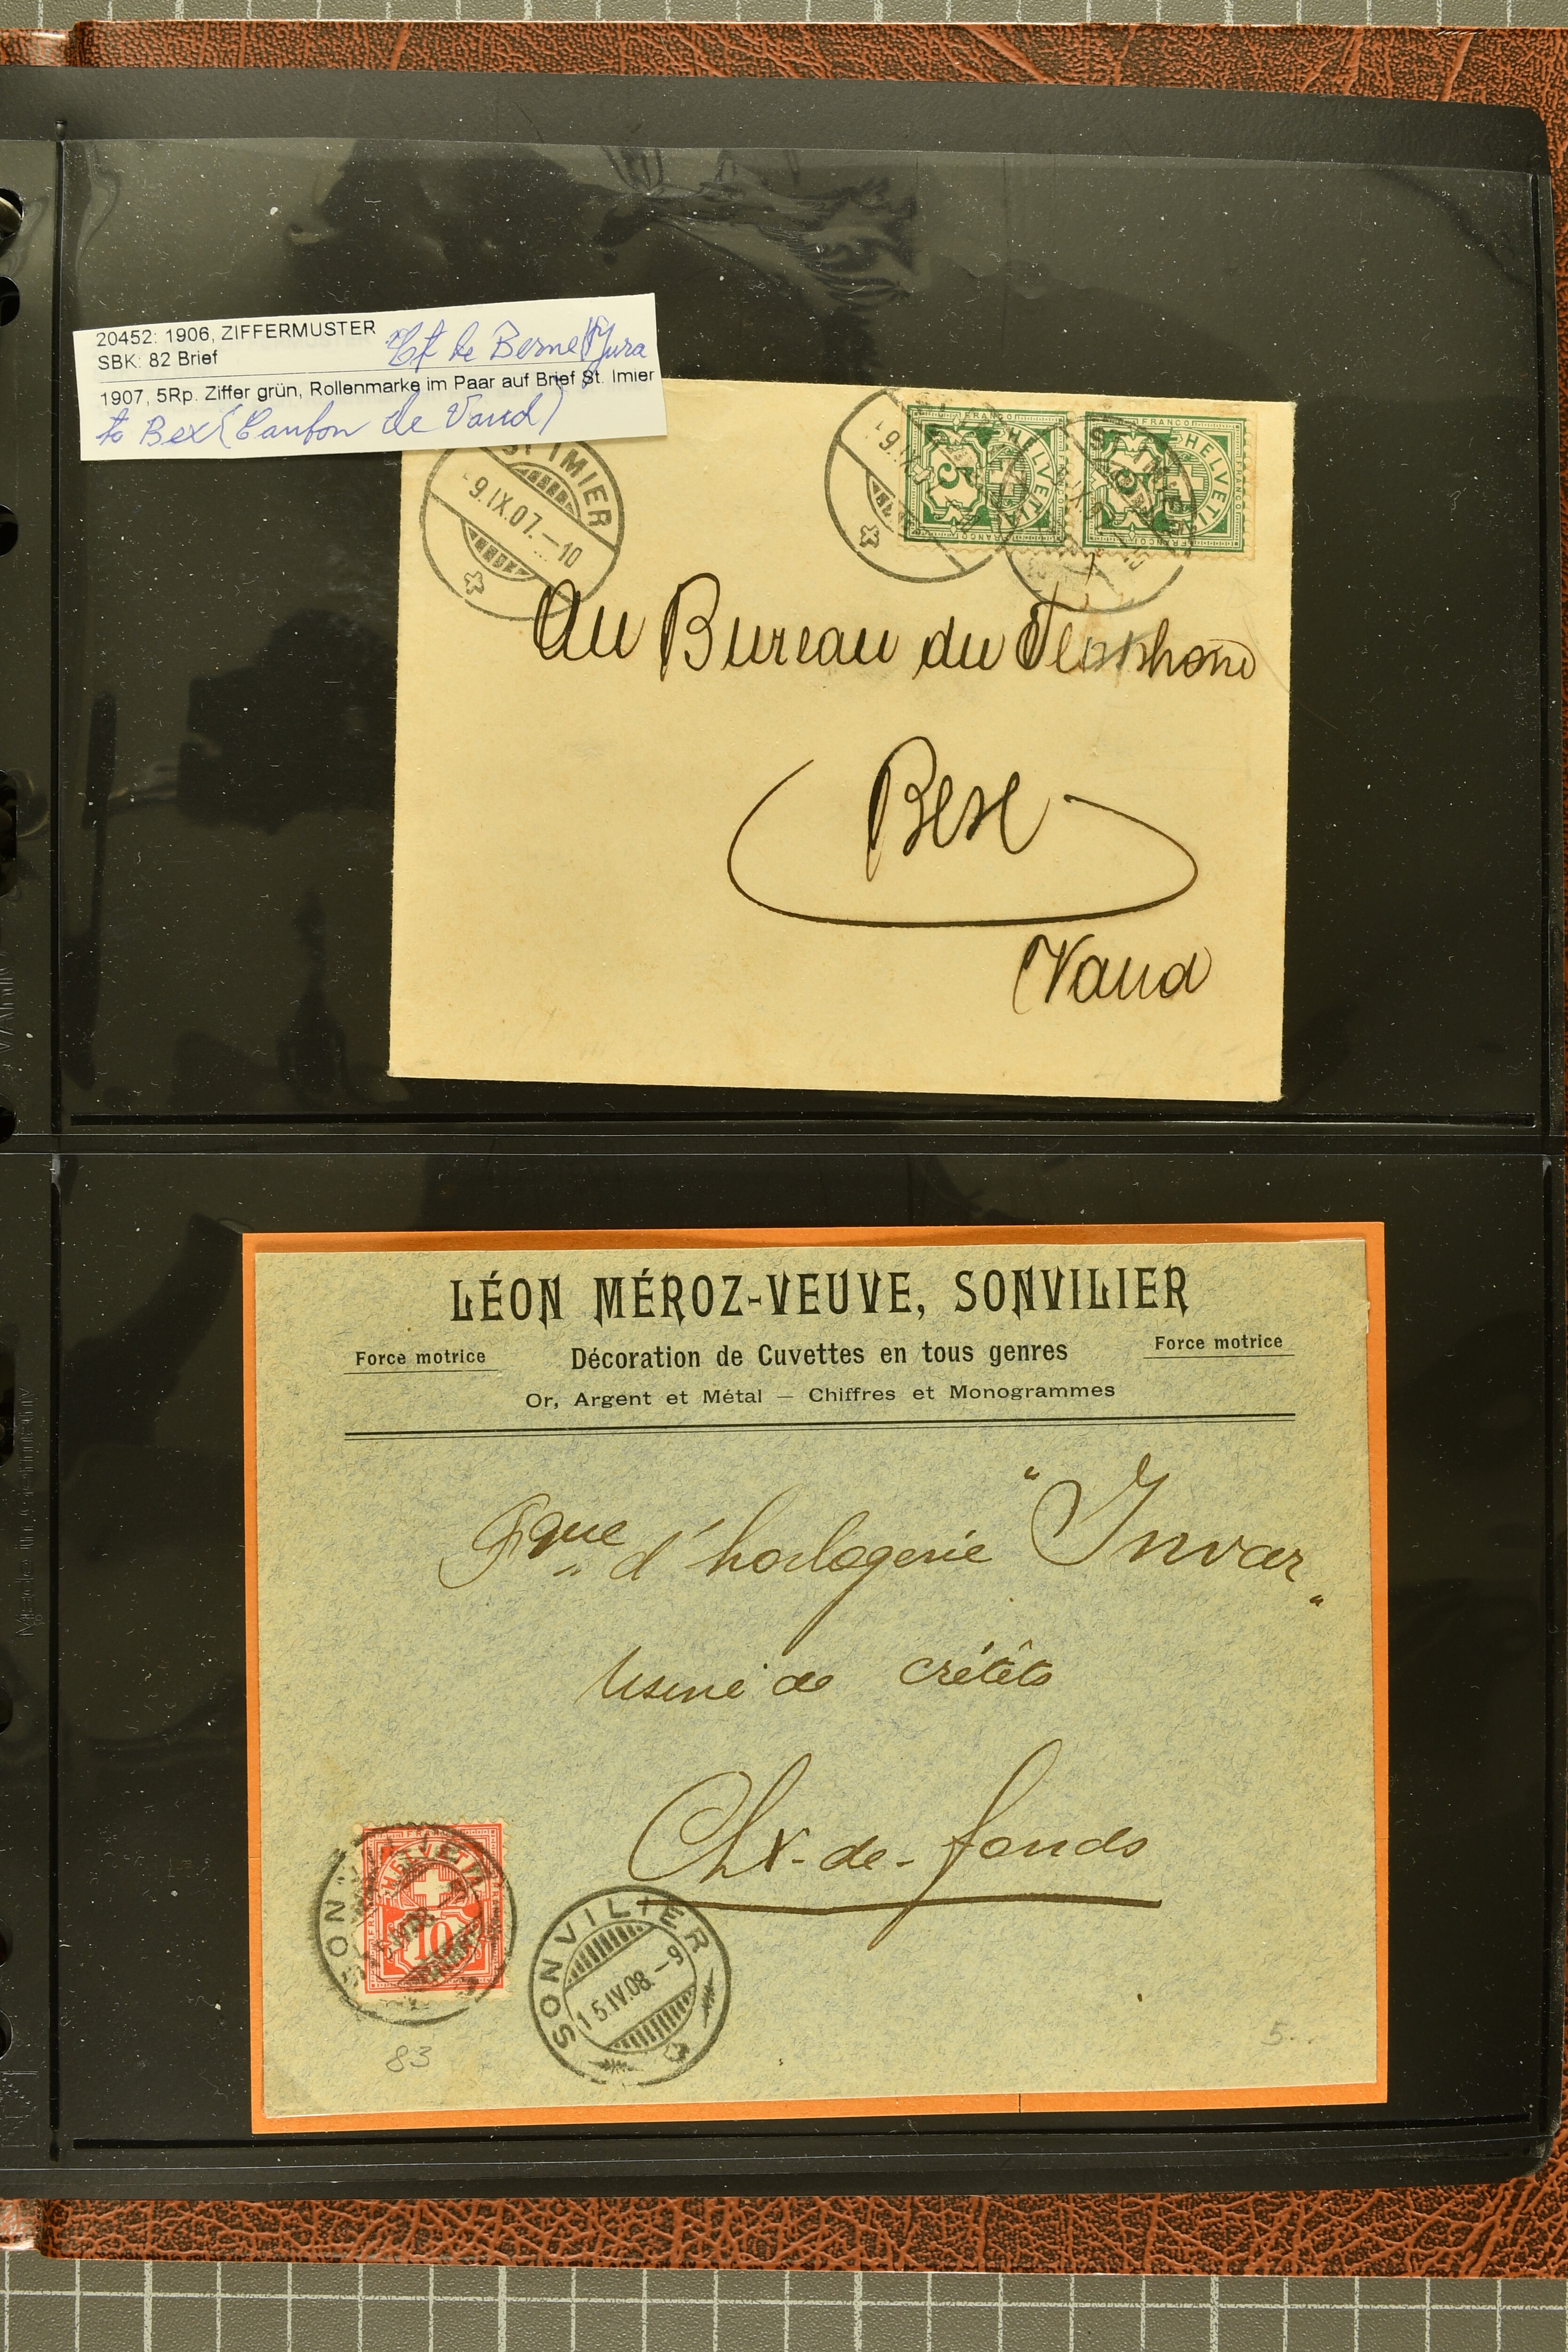 20452: 1906, ZIFFERMUSTER
SBK: 82 Brief
Ct de Berne/Jura
1907, 5Rp. Ziffer grün, Rollenmarke im Paar auf Brief St. Imier
to Bex (Canton de Vaud)
ST. IMIER
-9.IX.07.-10
FRANCO
HELVETIA
5
FRANCO
HELVETIA
5
Au Bureau du Telephone
Bex
Vaud
LÉON MÉROZ-VEUVE, SONVILIER
Force motrice
Décoration de Cuvettes en tous genres
Force motrice
Or, Argent et Métal — Chiffres et Monogrammes
Fque d'horlogerie "Invar"
Usine de crétêts
Chx-de-fonds
HELVETIA
10
SONVILIER
15.IV.08.-9
83
5..